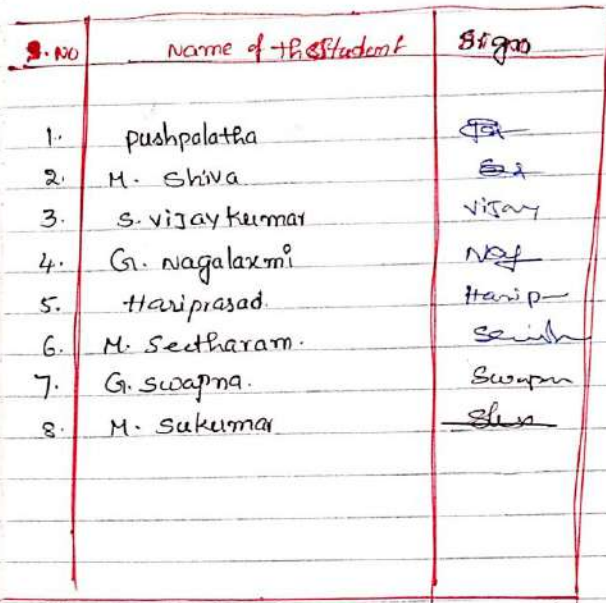 S. NO Name of the Student Sign
1. Pushpalatha
2. M. Shiva
3. S. Vijay Kumar Vijay
4. G. Nagalaxmi
5. Hariprasad. Harip
6. M. Seetharam.
7. G. Swapna. Swapna
8. M. Sukumar